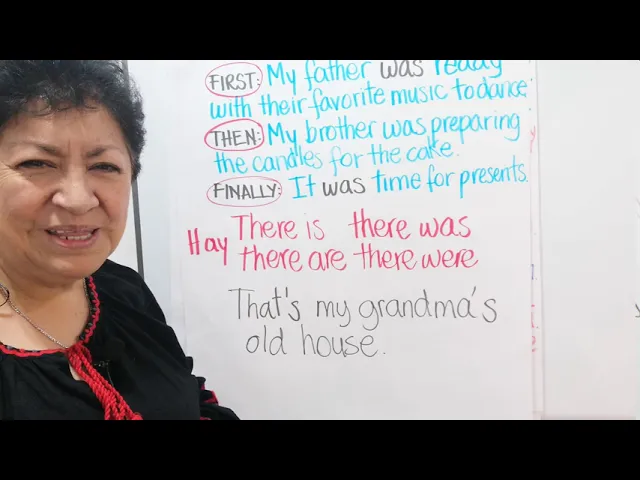 FIRST: My father was ready
with their favorite music to dance
THEN: My brother was preparing
the candles for the cake.
FINALLY: It was time for presents.
Hay There is there was
there are there were
That's my grandma's
old house.